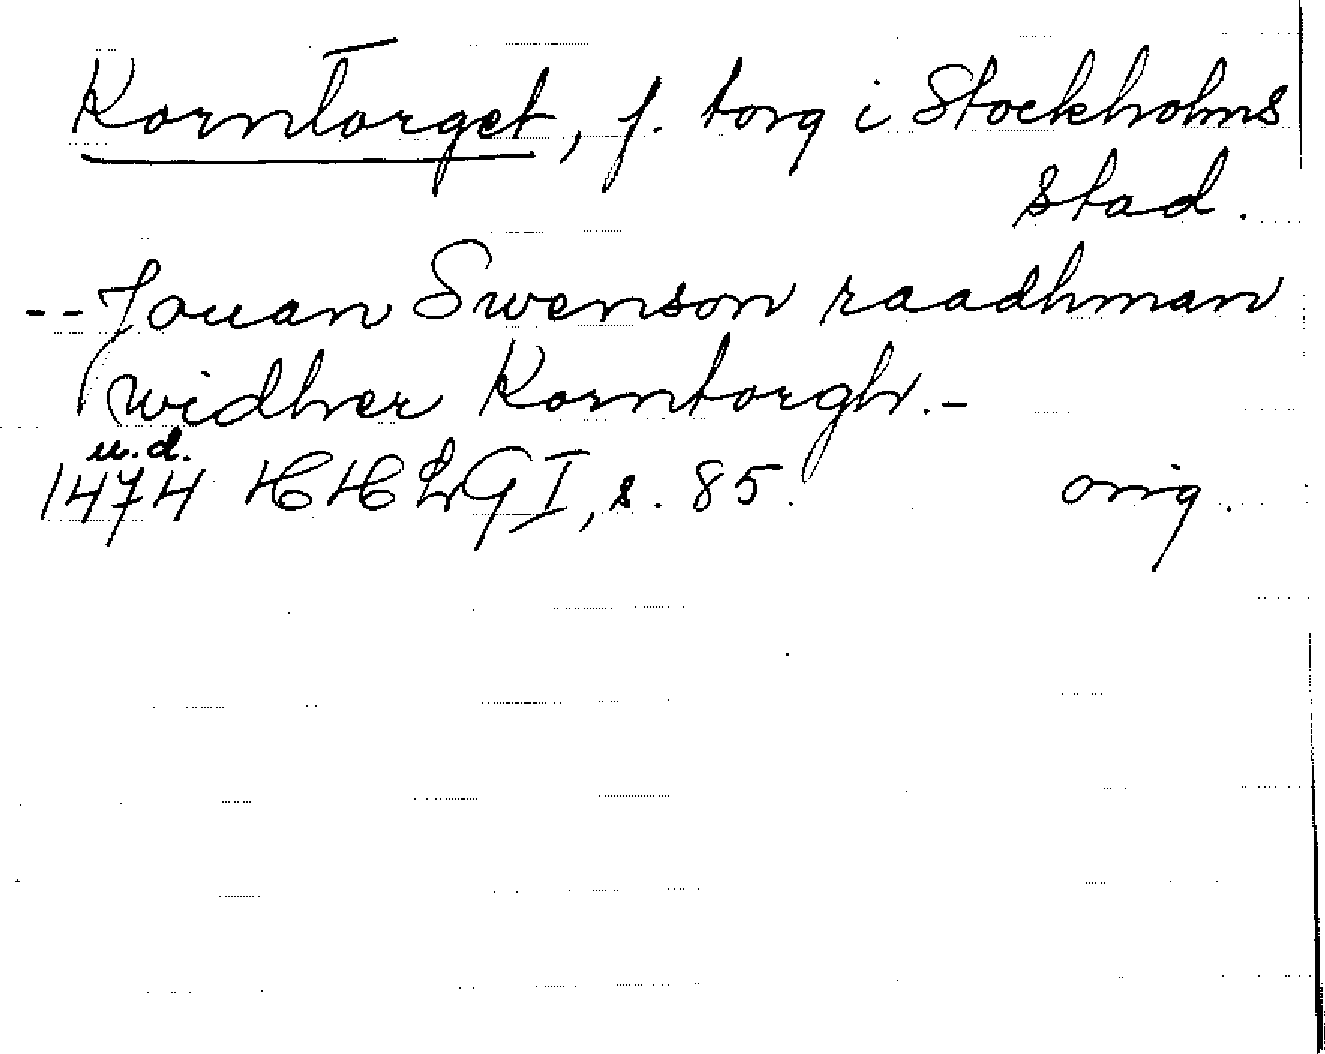 Korntorget, f. torg i Stockholms
stad.
-- Jouan Swenson raadhman
widher Korntorgh. -
u.d.
1474 HHLG I, s. 85. orig.